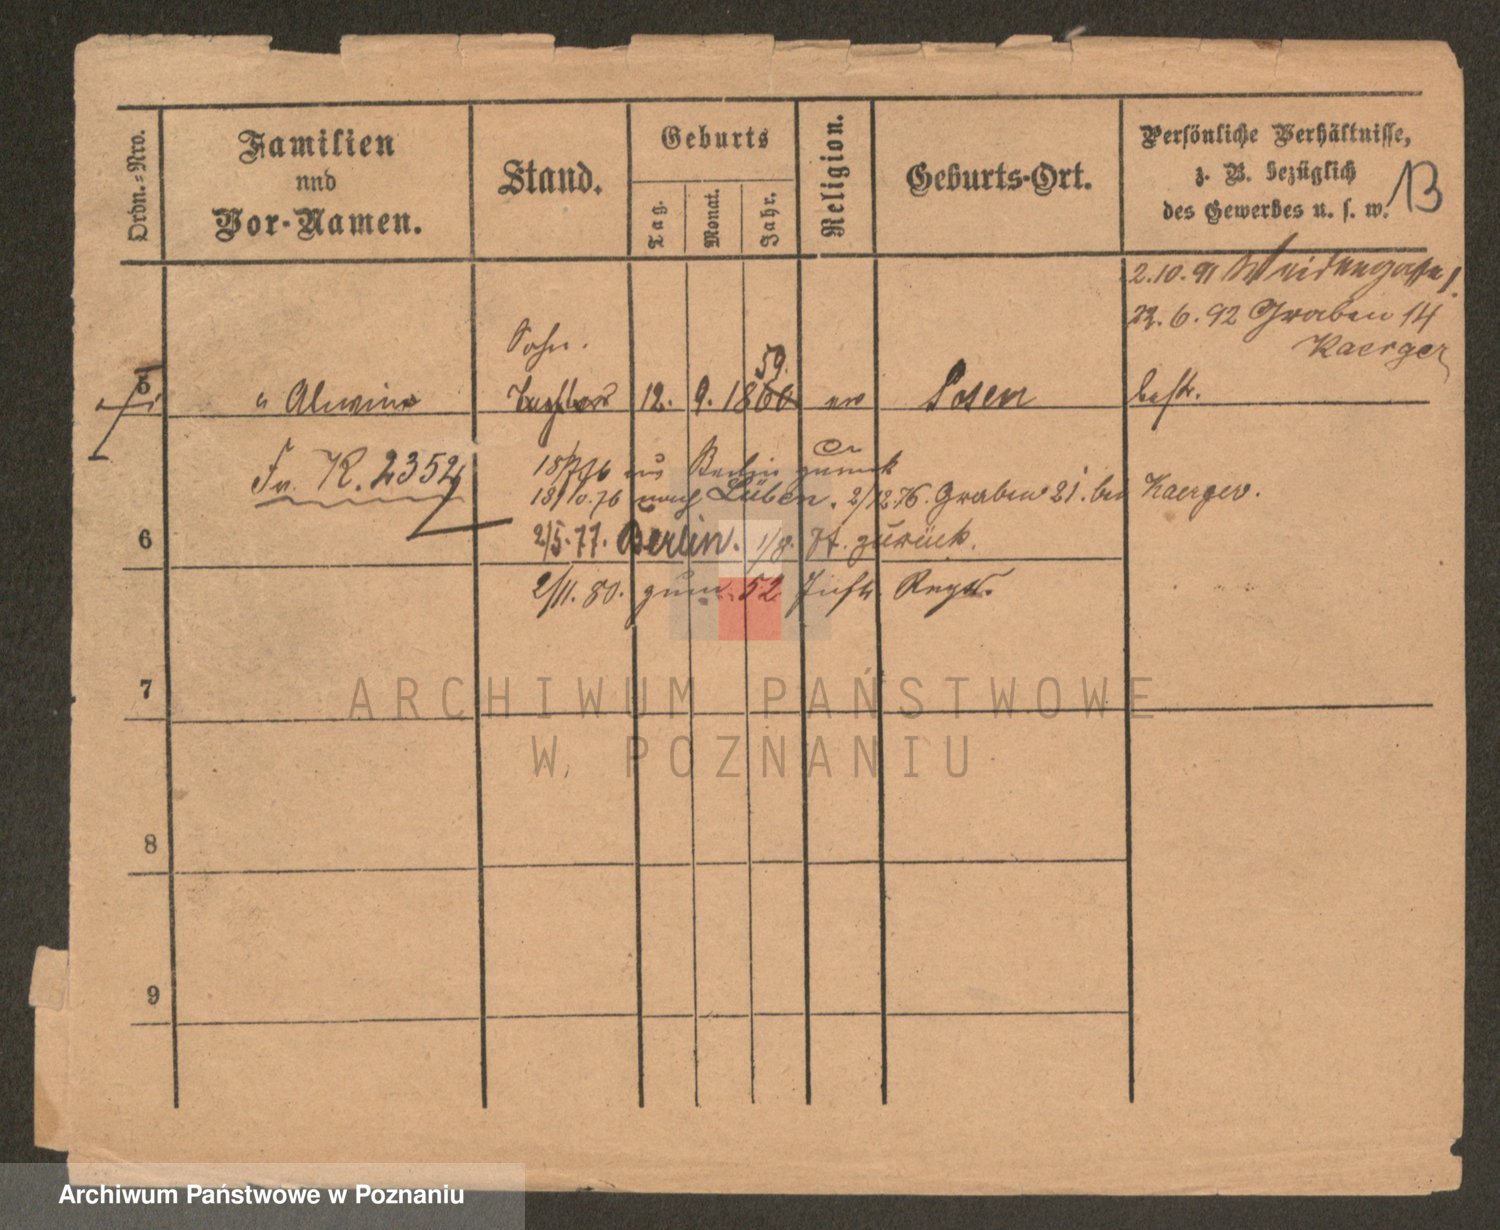 Ordn.-Nro.
Familien
und
Vor-Namen.
Stand.
Geburts
Tag.
Monat.
Jahr.
Religion.
Geburts-Ort.
Persönliche Verhältnisse,
z. B. bezüglich
des Gewerbes u. s. w.
13
2.10.91 Weidengasse 1.
22.6.92 Graben 14
Kaerger
Sohn.
59.
5 " Alwine Tochter 12. 9. 1860 ev Posen bestr.
Fr. K. 2352
aus Berlin zurück
18/10.76 nach Lüben. 2/12.76. Graben 21. bei Kaerger.
6
2/5.77. Berlin. zurück.
2/11.80. zum 52 Inftr Regt.
7
8
9
ARCHIWUM PAŃSTWOWE
W POZNANIU
Archiwum Państwowe w Poznaniu